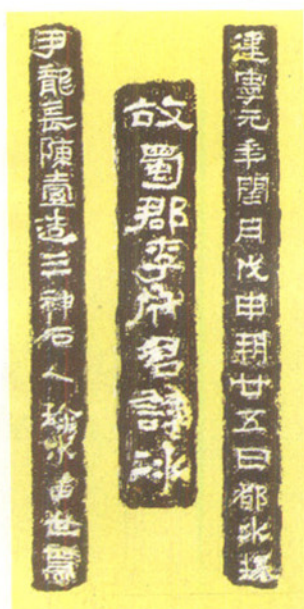 建寧元年閏月戊申朔廿五日都水掾
故蜀郡李府君諱冰
尹龍長陳壹造三神石人珍水萬世焉